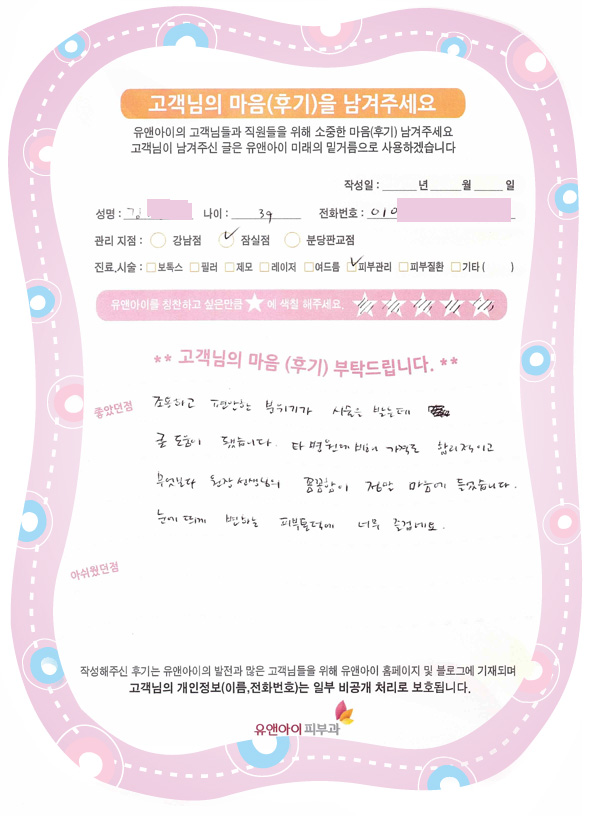 고객님의 마음(후기)을 남겨주세요
유앤아이의 고객님들과 직원들을 위해 소중한 마음(후기) 남겨주세요
고객님이 남겨주신 글은 유앤아이 미래의 밑거름으로 사용하겠습니다
작성일 : 년 월 일
성명 : 김 나이 : 39 전화번호 : 010
관리 지점 : 강남점 잠실점 분당판교점
진료,시술 : 보톡스 필러 제모 레이저 여드름 피부관리 피부질환 기타 ( )
유앤아이를 칭찬하고 싶은만큼 ★에 색칠 해주세요.
** 고객님의 마음 (후기) 부탁드립니다. **
좋았던점
조용하고 편안한 분위기가 시술을 받는데
큰 도움이 됐습니다. 타 병원에 비해 가격도 합리적이고
무엇보다 원장 선생님의 꼼꼼함이 정말 마음에 들었습니다.
눈에 띄게 변하는 피부톤에 너무 즐겁네요.
아쉬웠던점
작성해주신 후기는 유앤아이의 발전과 많은 고객님들을 위해 유앤아이 홈페이지 및 블로그에 기재되며
고객님의 개인정보(이름,전화번호)는 일부 비공개 처리로 보호됩니다.
유앤아이피부과